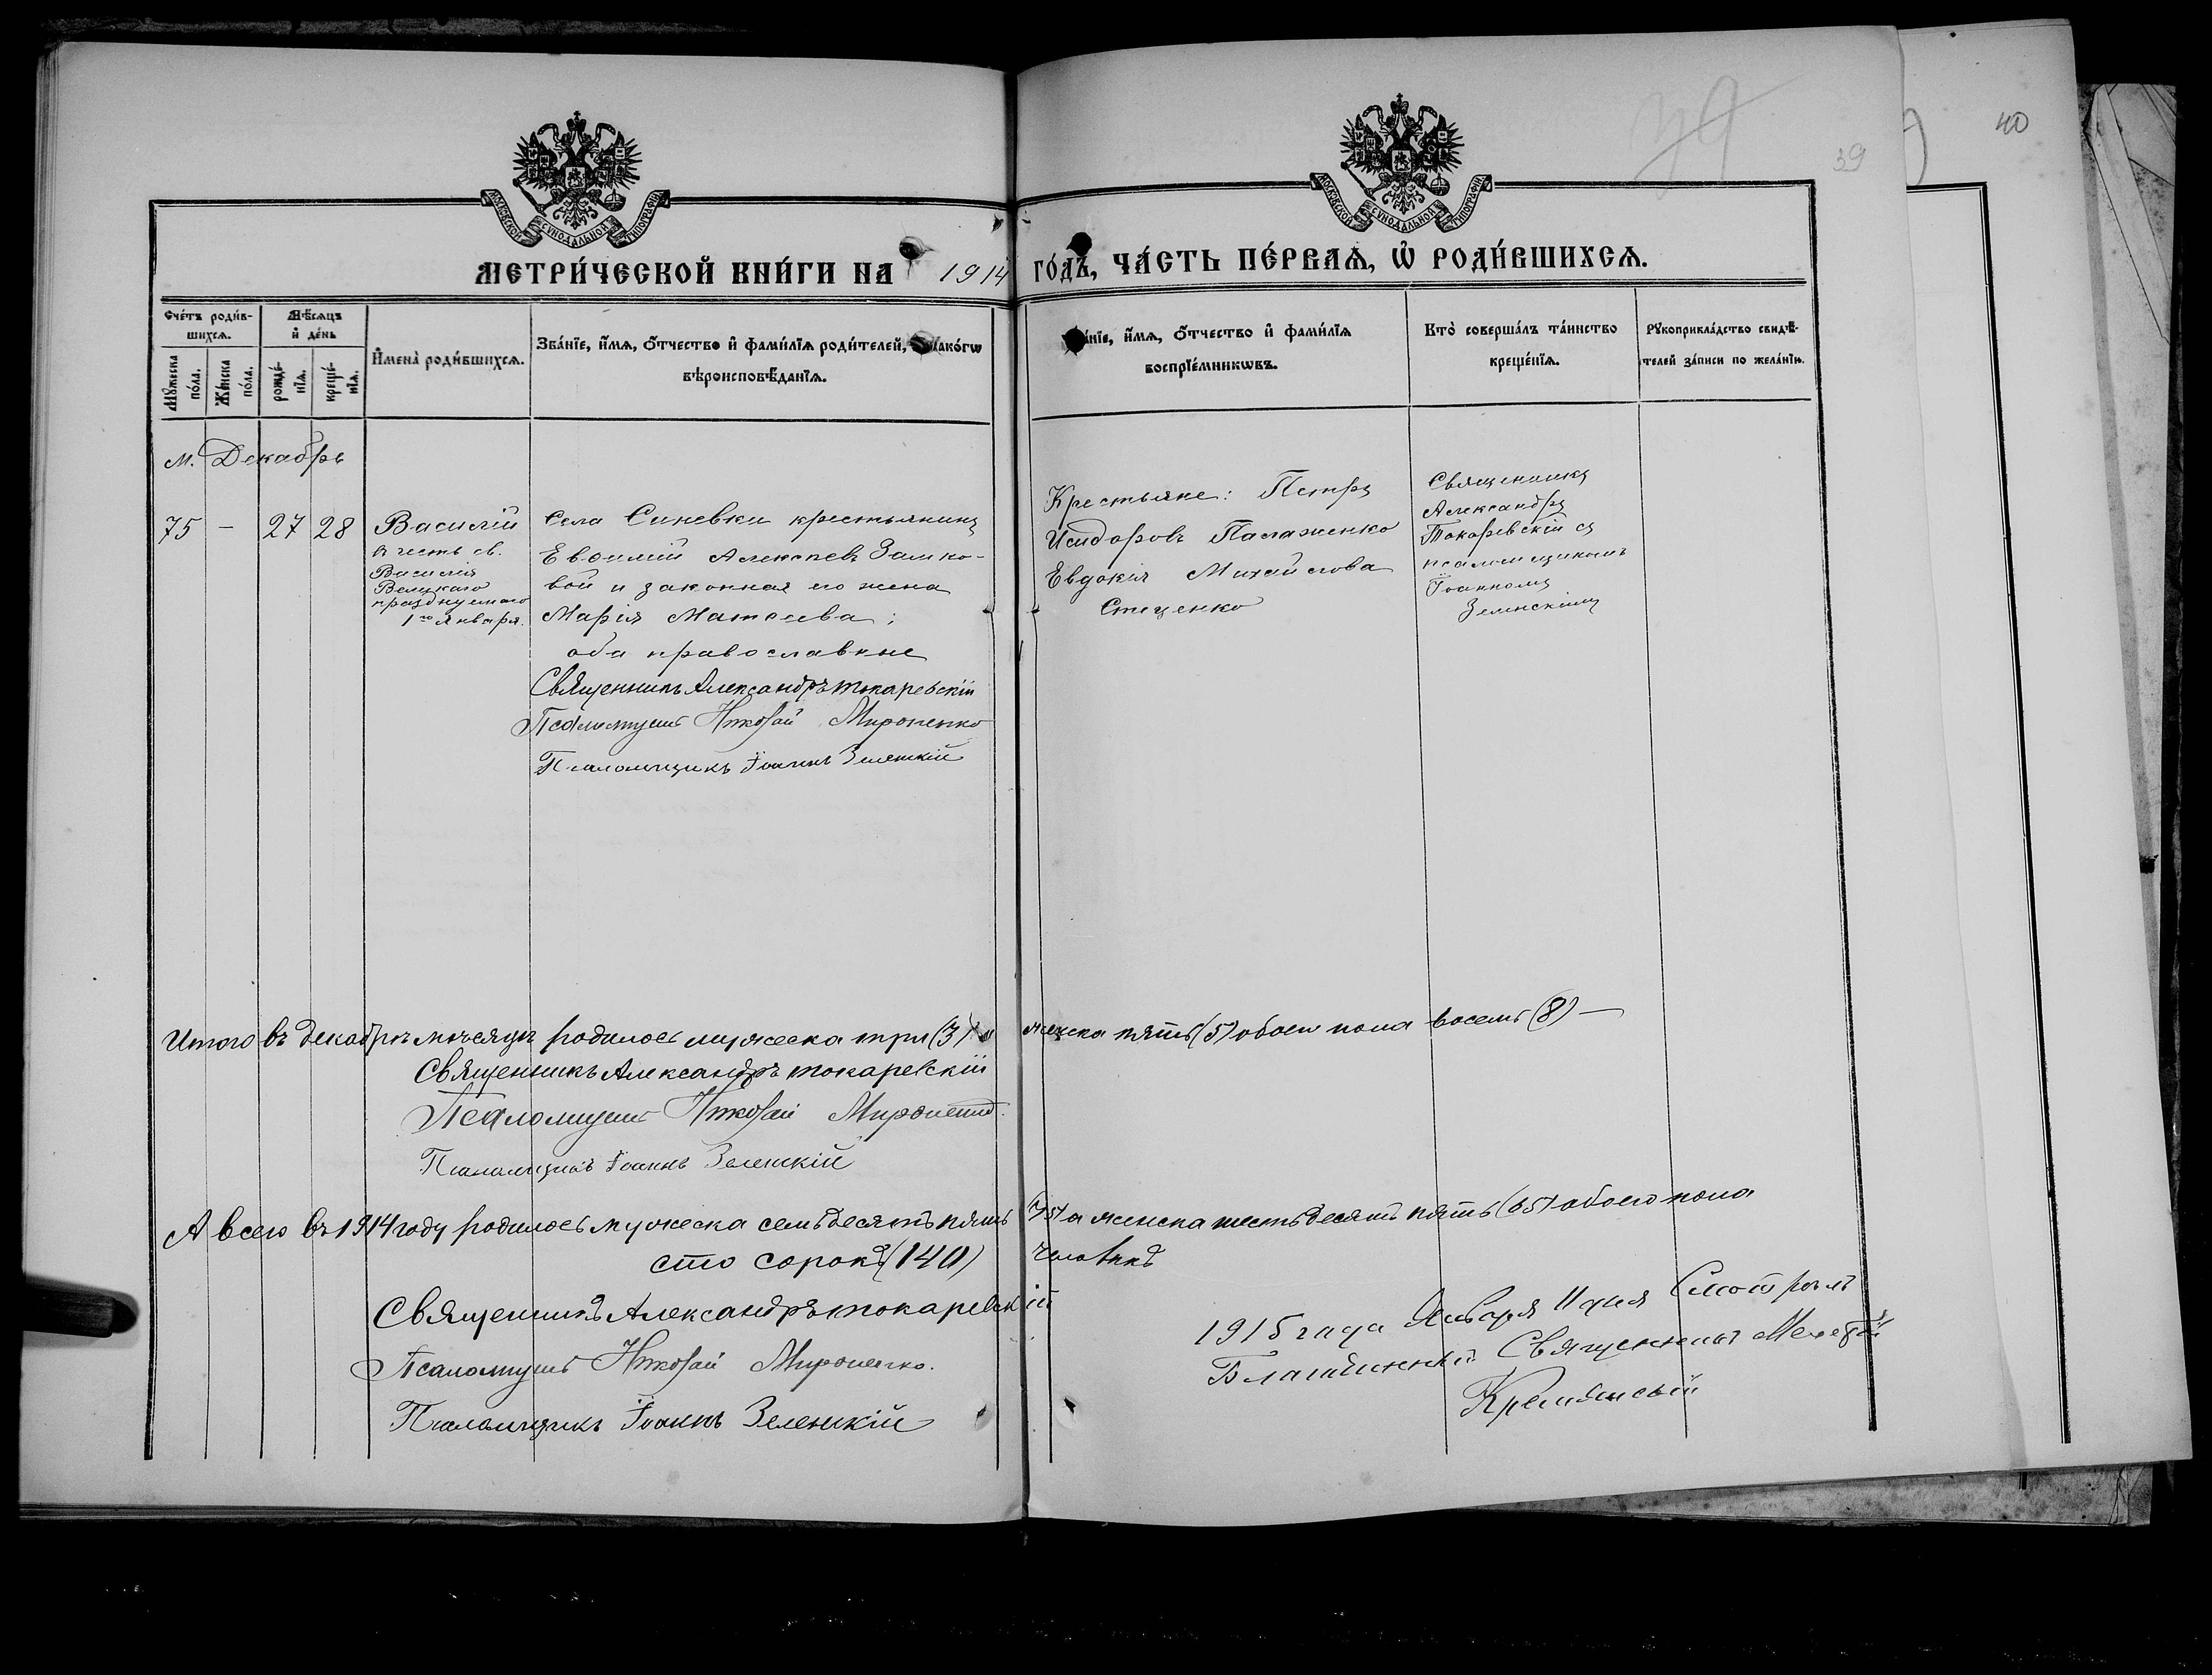 39
39
40
МОСКОВСКОЙ СѴНОДАЛЬНОЙ ТИПОГРАФІИ
МОСКОВСКОЙ СѴНОДАЛЬНОЙ ТИПОГРАФІИ
МЕТРИ́ЧЕСКОЙ КНИ́ГИ НА 1914 ГО́ДЪ, ЧА́СТЬ ПЕ́РВАѦ, Ѡ҆ РОДИ́ВШИХСѦ.
Сче́тъ роди́в-
шихсѧ.
Мꙋ́жеска по́ла.
Же́нска по́ла.
Мѣ́сѧцъ
и҆ де́нь
рожде́-
нїѧ.
креще́-
нїѧ.
И҆мена̀ роди́вшихсѧ.
Зва́нїе, и҆́мѧ, ѻ҆́тчество и҆ фами́лїѧ роди́телей, и҆ како́гѡ
вѣроисповѣ́данїѧ.
Зва́нїе, и҆́мѧ, ѻ҆́тчество и҆ фами́лїѧ
воспрїе́мникѡвъ.
Кто̀ соверша́лъ та́инство
креще́нїѧ.
Рꙋкоприкла́дство свидѣ́-
телей за́писи по жела́нїю.
м. Декабрь
75 – 27 28
Василій
въ честь св.
Василія
Великаго
празднуемаго
1го Января.
Села Синевки крестьянинъ
Евѳимій Алексѣевъ Замко-
вой и законная его жена
Марія Матѳеева;
оба православные
Священникъ Александръ Токаревскій
Псаломщикъ Николай Мироненко
Псаломщикъ Іоаннъ Зеленскій
Крестьяне: Петръ
Исидоровъ Палаженко
Евдокія Михайлова
Стеценко
Священникъ
Александръ
Токаревскій съ
псаломщикомъ
Іоанномъ
Зеленскимъ
Итого въ декабрѣ мѣсяцѣ родилось мужеска три (3) и женска пять (5) обоего пола восемь (8) —
Священникъ Александръ Токаревскій
Псаломщикъ Николай Мироненко
Псаломщикъ Іоаннъ Зеленскій
А всего въ 1914 году родилось мужеска семьдесятъ пять (75) а женска шестьдесятъ пять (65) обоего пола
сто сорокъ (140) человѣкъ
Священникъ Александръ Токаревскій
Псаломщикъ Николай Мироненко.
Псаломщикъ Іоаннъ Зеленскій
1915 года Января 11 дня Смотрѣлъ
Благочинный Священникъ Мелетій
Кремянскій